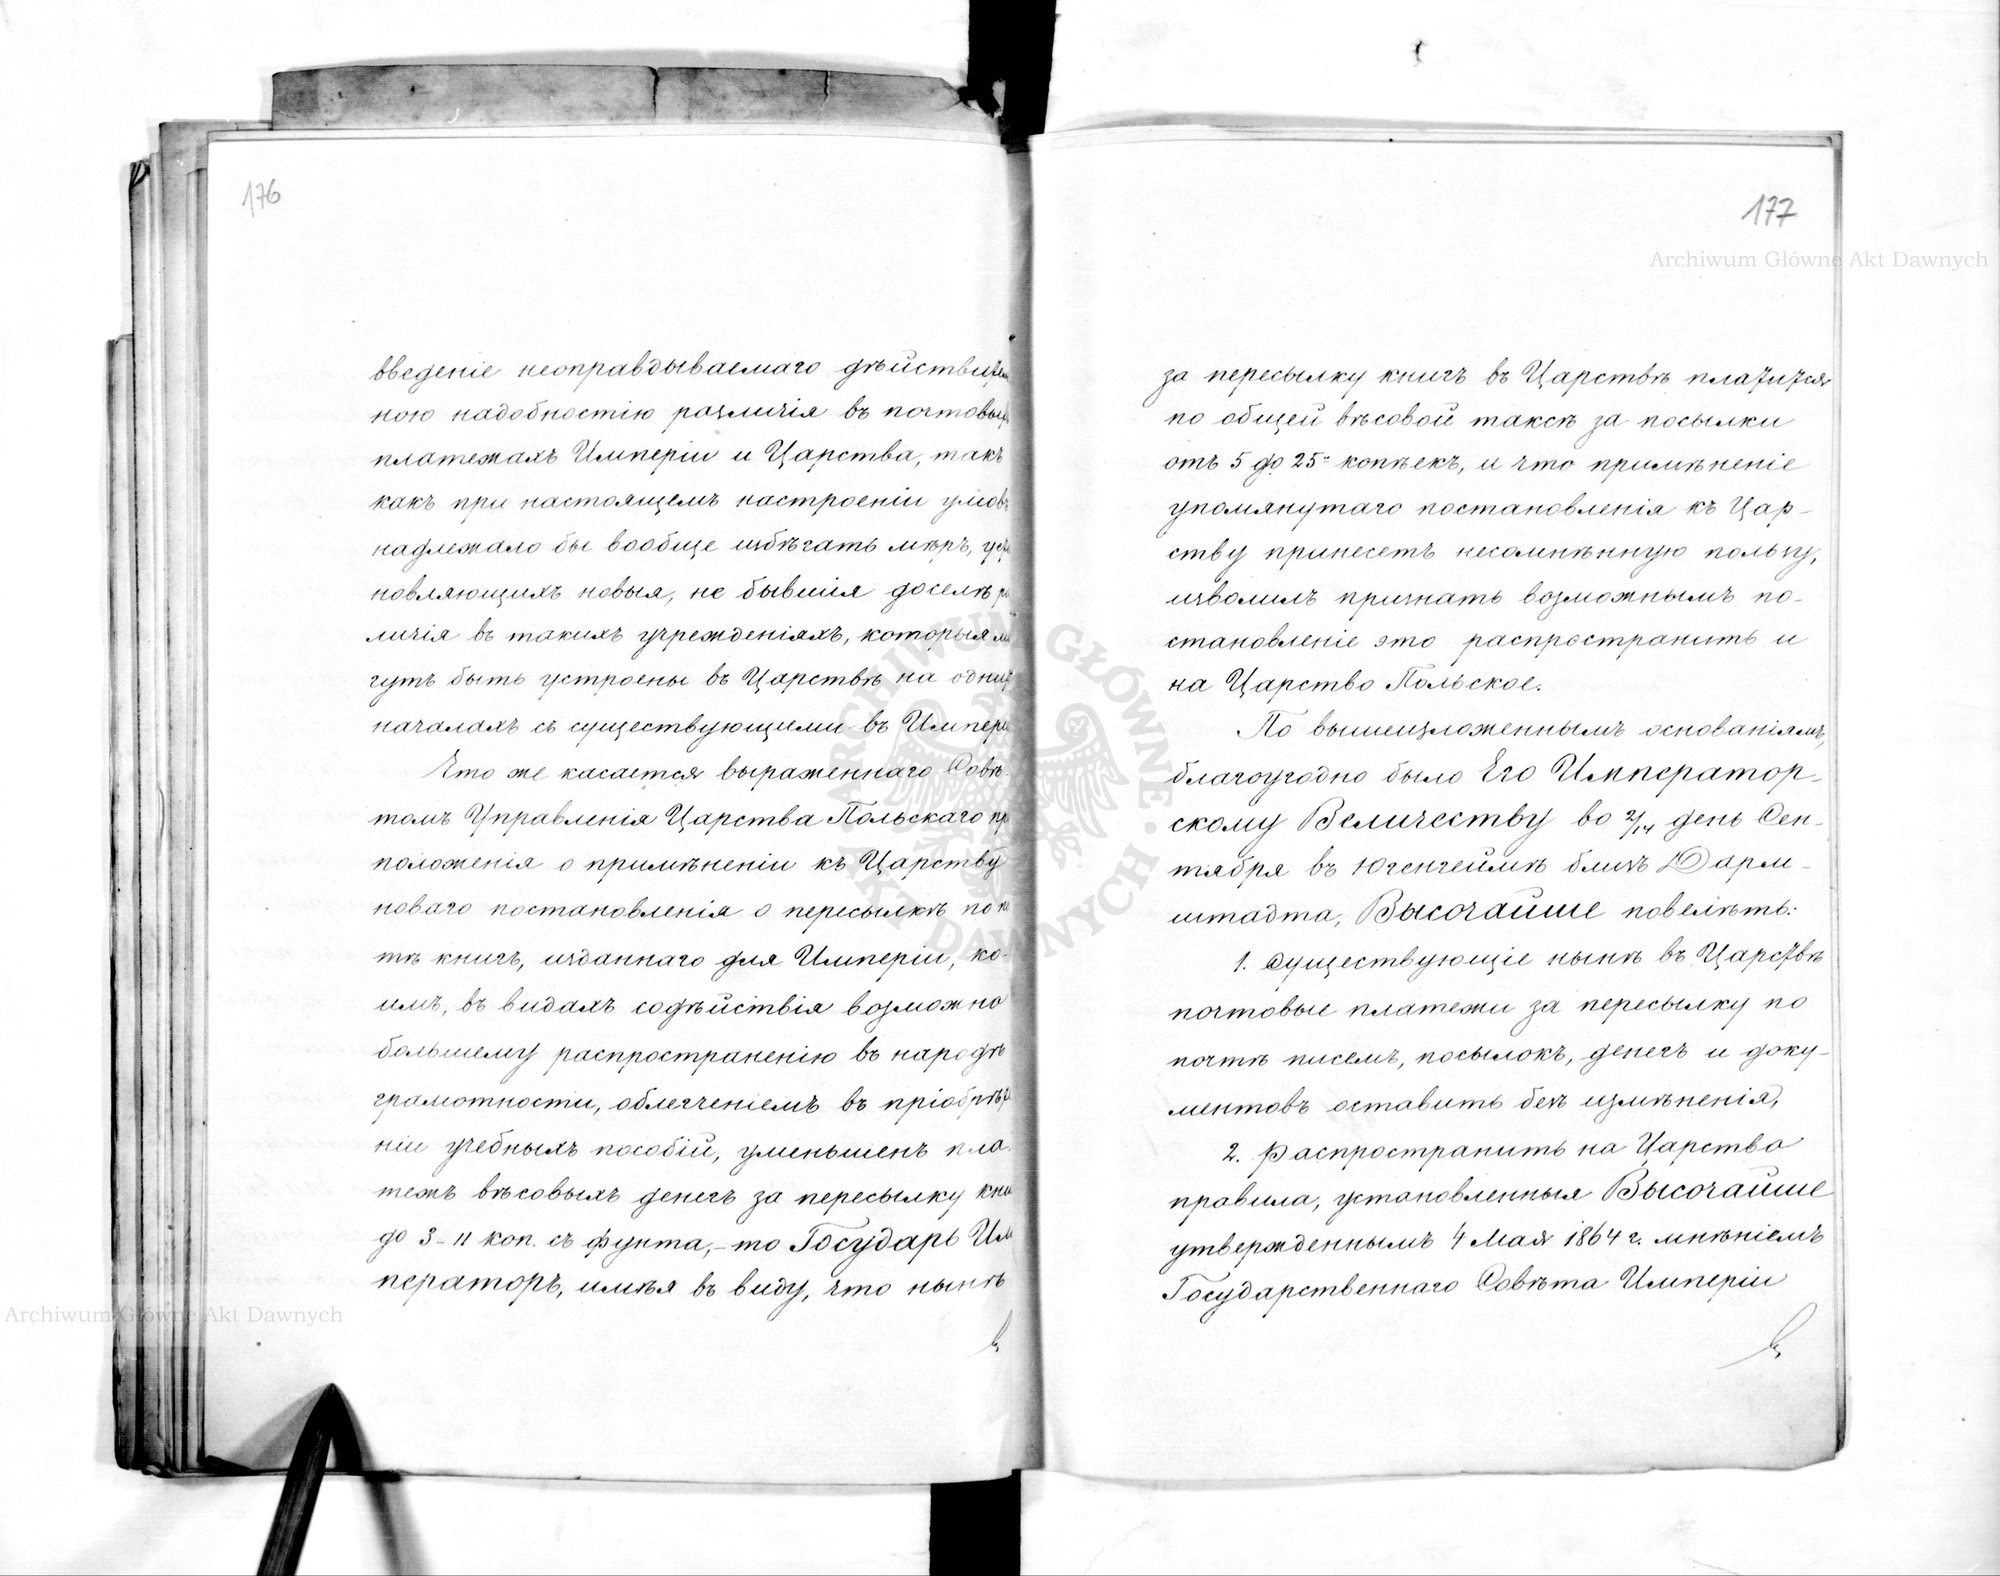 176
введеніе неоправдываемаго дѣйствител
ною надобностію различія въ почтовыхъ
платежахъ Имперіи и Царства, такъ
какъ при настоящемъ настроеніи умовъ
надлежало бы вообще избѣгать мѣръ, уста
новляющихъ новыя, не бывшія доселѣ ра
личія въ такихъ учрежденіяхъ, которыя мо
гутъ быть устроены въ Царствѣ на одних
началахъ съ существующими въ Импері
Что же касается выраженнаго Совѣ
томъ Управленія Царства Польскаго пр
положенія о примѣненіи къ Царству
новаго постановленія о пересылкѣ по по
тѣ книгъ, изданнаго для Имперіи, ко-
имъ, въ видахъ содѣйствія возможно
большему распространенію въ народѣ
грамотности, облегченіемъ въ пріобрѣте
ніи учебныхъ пособій, уменьшенъ пла
тежъ вѣсовыхъ денегъ за пересылку кни
до 3-и коп. съ фунта,- то Государь Им
ператоръ, имѣя въ виду, что нынѣ
177
за пересылку книгъ въ Царствѣ платится
по общей вѣсовой таксѣ за посылки
отъ 5 до 25- копѣекъ, и что примѣненіе
упомянутаго постановленія къ Цар-
ству принесетъ несомнѣнную пользу,
изволилъ признать возможнымъ по-
становленіе это распространить и
на Царство Польское.
По вышеизложеннымъ основаніямъ,
благоугодно было Его Император-
скому Величеству во 2/14 день Сен-
тября въ Югенгеймѣ близъ Дарм-
штадта, Высочайше повелѣть:
1. Существующіе нынѣ въ Царствѣ
почтовые платежи за пересылку по
почтѣ писемъ, посылокъ, денегъ и доку-
ментовъ оставить безъ измѣненія,
2. Распространить на Царство
правила, установленныя Высочайше
утвержденнымъ 4 Мая 1864 г. мнѣніемъ
Государственнаго Совѣта Имперіи
Archiwum Główne Akt Dawnych
Archiwum Główne Akt Dawnych
ARCHIWUM GŁÓWNE AKT DAWNYCH